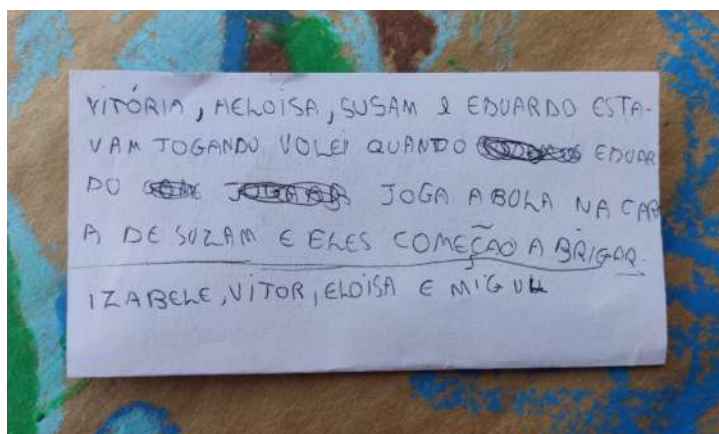 VITÓRIA, HELOISA, SUSAM E EDUARDO ESTA-
VAM JOGANDO VOLEI QUANDO EDUAR
DO JOGA A BOLA NA CAR
A DE SUZAM E ELES COMEÇÃO A BRIGAR.
IZABELE, VITOR, ELOISA E MIGUEL